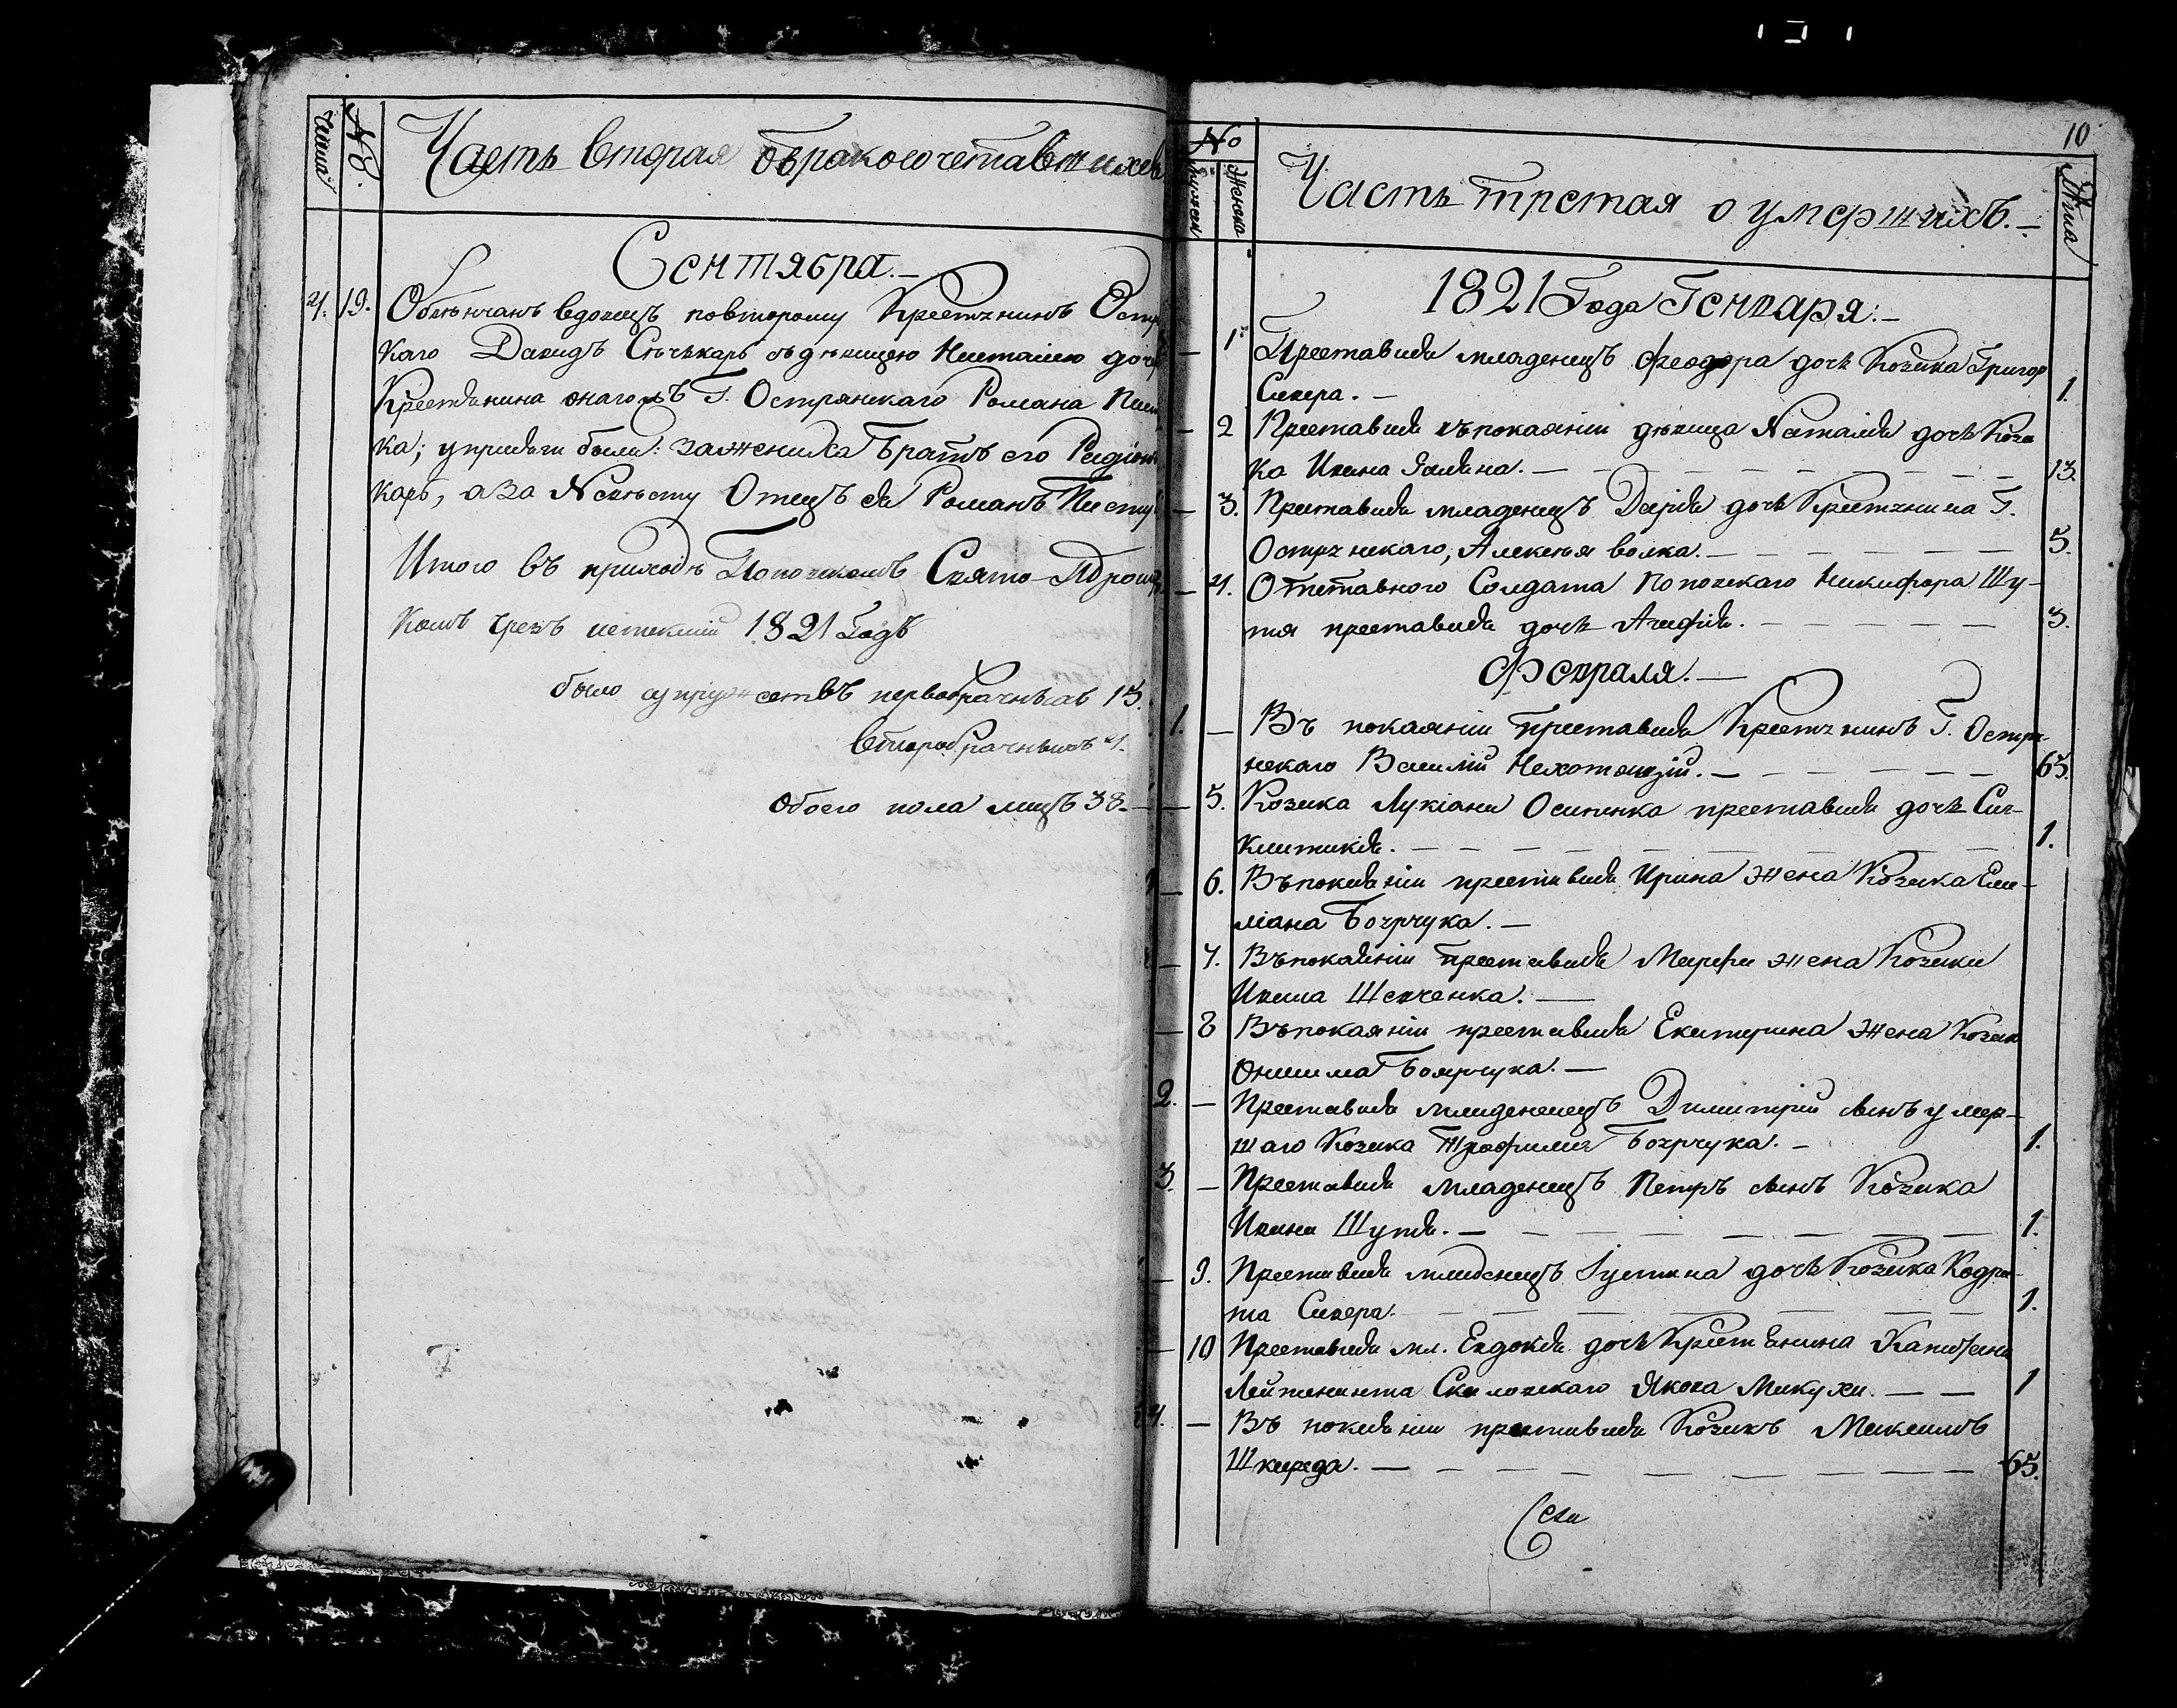 числа
№
Часть вторая о бракосочетавшихся
Сентября.—
4. 19. Обвѣнчанъ вдовецъ повторому Крестянинъ Остр
каго Давидъ Сѣчкарь съ дѣвицею Наталіею доч
Крестянина онагожъ Г. Острянскаго Романа Пуст
ка; у присяги были: за жениха братъ его Радіонъ
карь, а за Невѣсту Отецъ ея Романъ Пусту
Итого въ приходѣ Поповскомъ Свято-
комъ чрезъ истекшій 1821 Годъ
было супружествъ первобрачныхъ 15.
второбрачныхъ 4.
Обоего пола лицъ 38.
10
№
мужска
женска
Часть третая о умершихъ.—
Лѣта
1821 Года Генваря.—
— 1. Преставися младенецъ Феодора дочь Козака Григор
Сивера.— 1.
— 2 Преставися въ покаяніи дѣвица Наталія дочь Коза
ка Ивана 13.
— 3. Преставися младенецъ Дарія дочь Крестянина Г.
Острянскаго, Алексѣя волка.— 5.
— 4. Отставного Солдата Поповскаго Никифора Шу-
тя преставися дочь Агафія. 3.
Февраля.—
1. — Въ покаяніи преставися Крестянинъ Г. Остря-
нскаго Василій 65.
— 5. Козака Лукіана Осипенка преставися дочь Син-
клитикія. 1.
— 6. Въ покаяніи преставися Ирина жена Козака Еми-
ліана Боярчука.—
— 7. Въ покаяніи преставися Марфа жена Козака
Ивана Шевченка.—
— 8 Въ покаяніи преставися Екатерина жена Козака
Онисима Боярчука.—
2. — Преставися младенецъ Димитрій сынъ умер-
шаго Козака Трофима Боярчука.— 1.
3. — Преставися младенецъ Петръ сынъ Козака
Ивана Шутя.— 1.
— 9. Преставися младенецъ Іустина дочь Козака Кодра-
та Сивера. 1.
— 10 Преставися мл. Евдокія дочь Крестянина Капитана
Лейтенанта Скаловскаго Якова Микухи.— 1
4. — Въ покаяніи преставися Козакъ Максимъ
Шкирда.— 65.